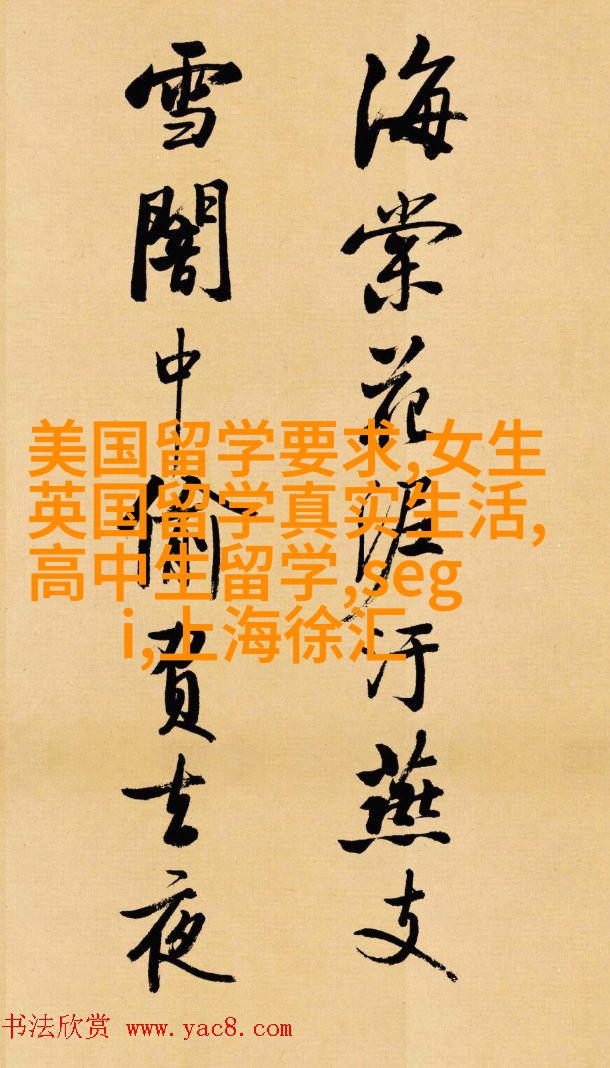 海棠花泥汙燕支
雪闇中偷負去夜
美国留学要求,女生
英国留学真实生活,
高中生留学,seg
i,上海徐汇
书法欣赏 www.yac8.com